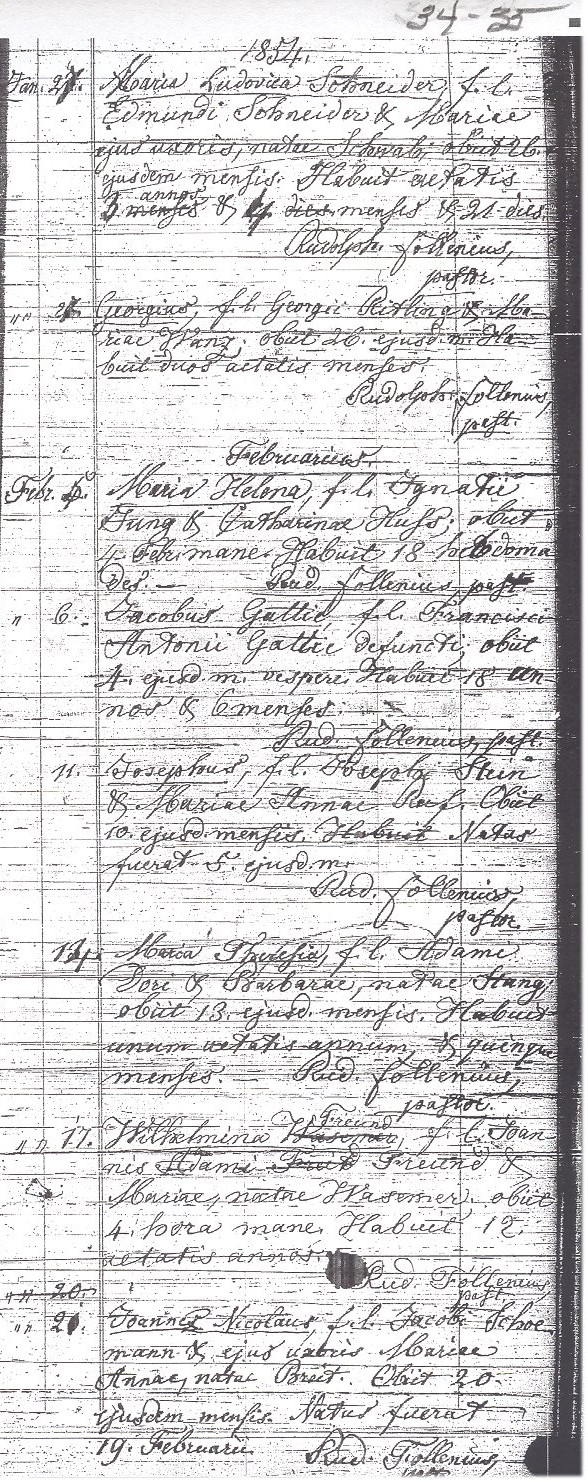 34-35
1854.
Jan. 27. Maria Ludovica Schneider, f. l.
Edmundi Schneider & Mariae
ejus uxoris, natae Schwab, obiit 26
ejusdem mensis. Habuit aetatis
annos
3 menses & 4 dies mensis & 21 dies.
Rudolph. Follenius,
pastor.
" " 27. Georgius, f. l. Georgii & Ma-
riae obiit 26. ejusd. m. Ha-
buit duos aetatis menses.
Rudolph. Follenius,
past.
Februarius.
Febr. 5. Maria Helena, f. l. Ignatii
Jung & Catharinae Huss; obiit
4 Febr. mane. Habuit 18 hebdoma
des. — Rud. Follenius, past.
" 6. Jacobus Gattie, f. l. Francisci
Antonii Gattie defuncti, obiit
4. ejusd. m. vespere. Habuit 18 an-
nos & 6 menses.
Rud. Follenius, past.
11. Josephus, f. l. Josephi Stein
& Mariae Annae Ruf. Obiit
10. ejusd. mensis. Habuit Natus
fuerat 5. ejusd. m.
Rud. Follenius,
pastor.
14. Maria Theresia, f. l. Adami
Dore & Barbarae, natae Stang,
obiit 13. ejusd. mensis. Habuit
unum aetatis annum & quinque
menses. — Rud. Follenius,
pastor.
Freund
" " 17. Wilhelmina Wasemer, f. l. Joan
nis Adami Freund &
Mariae, natae Wasemer. obiit
4. hora mane. Habuit 12
aetatis annos.
Rud. Follenius,
past.
" " 20.
" " 21. Joannes Nicolaus f. l. Jacobi Schoe-
mann & ejus uxoris Mariae
Annae, natae Breit. Obiit 20.
ejusdem mensis. Natus fuerat
19. Februarii. Rud. Follenius,